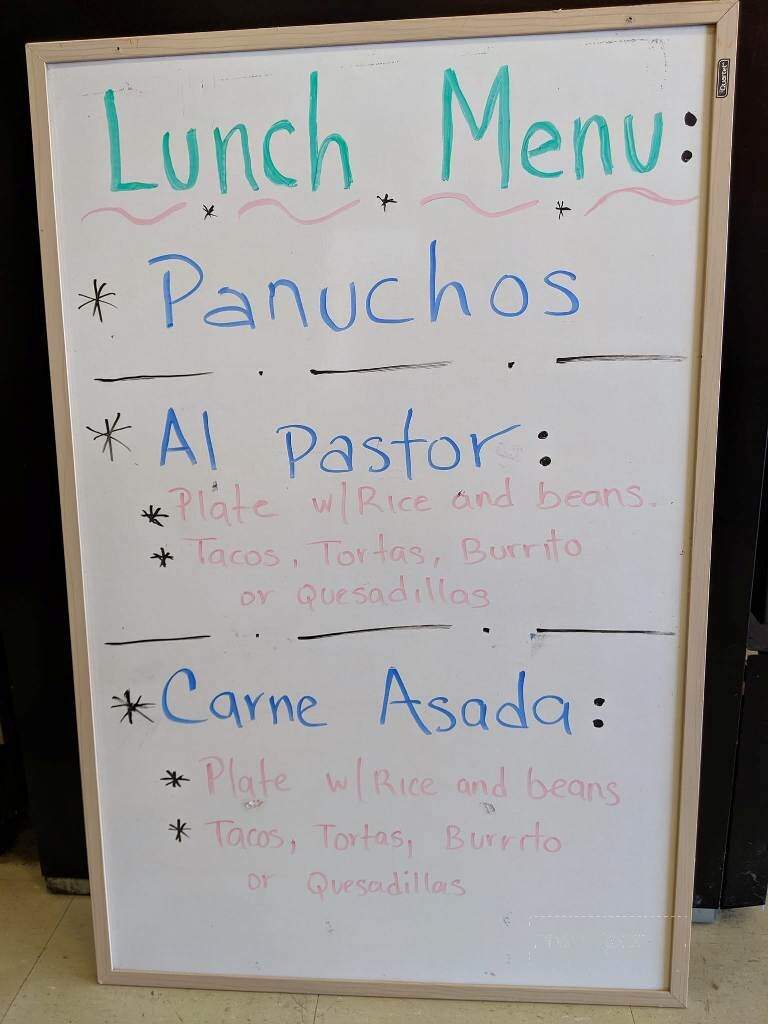 Lunch Menu:
* Panuchos
* Al Pastor:
* Plate w/Rice and beans.
* Tacos, Tortas, Burrito
or Quesadillas
* Carne Asada:
* Plate w/Rice and beans
* Tacos, Tortas, Burrito
or Quesadillas
Quartet